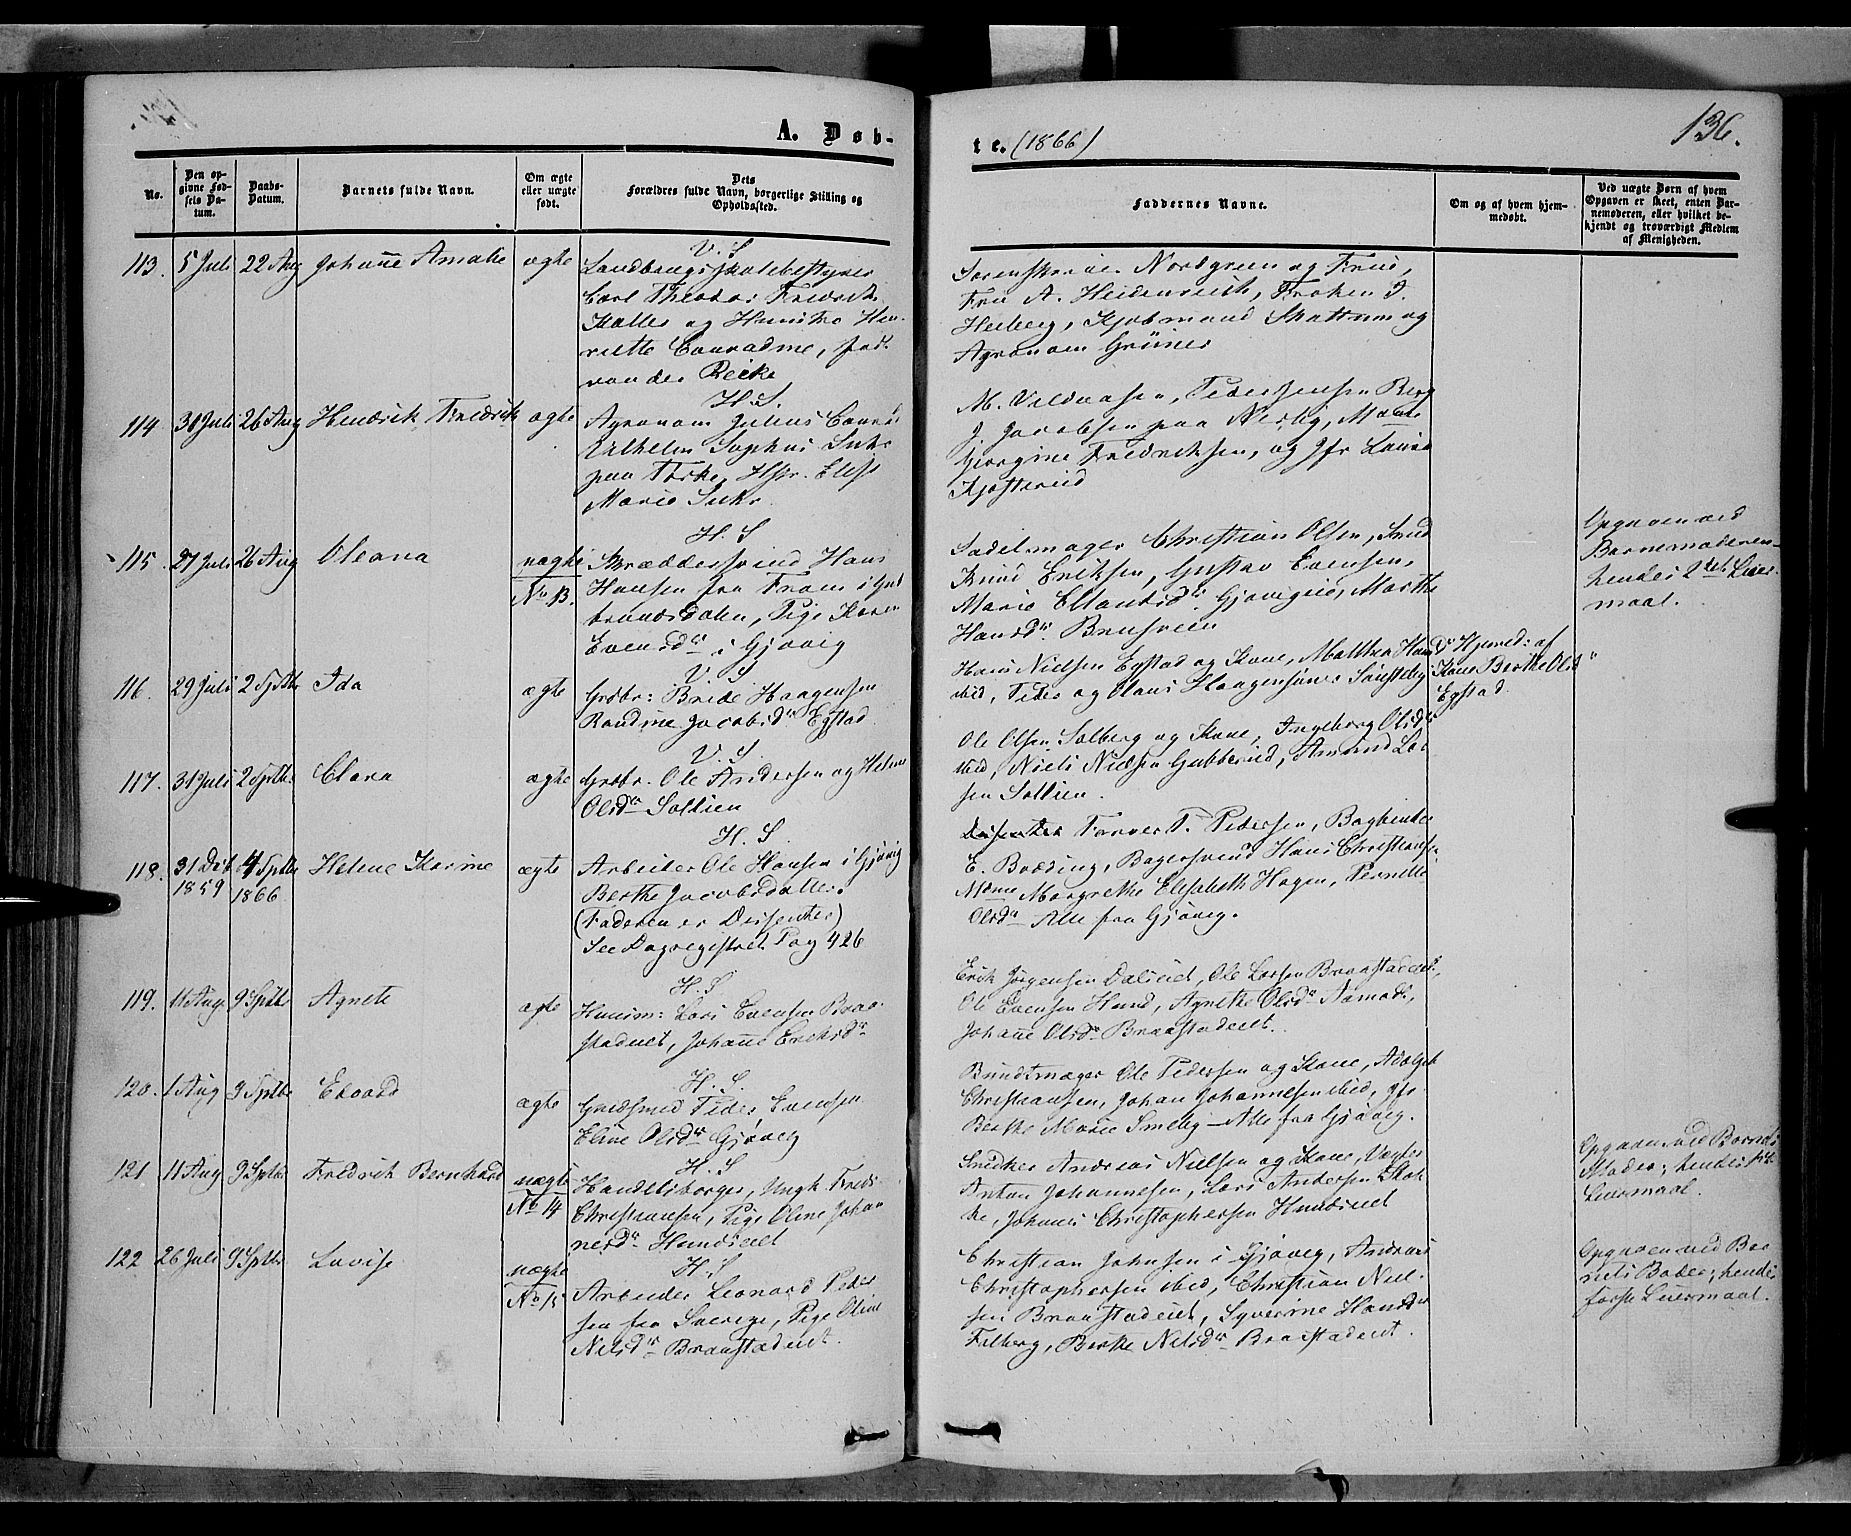 A. Døb-
te. (1866)
136.
No.
Den op-
givne Fød-
sels Da-
tum.
Daabs-
Datum.
Barnets fulde Navn.
Om ægte
eller uægte
født.
Dets
Forældres fulde Navn, borgerlige Stilling og
Opholdssted.
Faddernes Navne.
Om og af hvem hjem-
medøbt.
Ved uægte Børn af hvem
Opgaven er skeet, enten Bar-
nemoderen, eller hvilket be-
kjendt og troværdigt Medlem
af Menigheden.
113. 5 Juli 22 Aug Johanne Amalie ægte
V. S
Landbrugsskolebestyrer
Carl Theodor Fredrik
og Hustru Hen-
riette Conradine, fød.
von der Recke
Sorenskriver Nordgreen og Frue,
Fru A. Heidenreich, Frøken J.
Heiberg, Kjøbmand Skattum og
Agronom Grüner
114 30 Juli 26 Aug Hendrik Fredrik ægte
H. S.
Agronom Julius Conrad
Vilhelm Sophus
paa Hstr. Elise
Marie
M. Pedersen Berg
J. Jacobsen paa Nerby, Mdme
Georgine Fredriksen, og Jfr Louise
115. 27 Juli 26 Aug Oleana uægte
No 13.
H. S
Skræddersvend Hans
Hansen fra Fron i Gud
brandsdalen, Pige Karen
Evensdr i Gjøvig
Sadelmager Christian Olsen,
Knud Eriksen, Gustav Evensen,
Marie Gjøvigeie, Marthe
Hansdr Brusveen
Opgaven ved
Barnemoderen-
hendes 2det Leier-
maal.
116. 29 Juli 2 Septbr Ida ægte
V. S
Grdbr: Brede Haagensen
Randine Jacobsdr Egstad
Hans Nielsen Egstad og Kone, Mathea
ibid, Peder og Olaus Haagensønner
Hjemd: af
Kone Berthe Olsdr
Egstad.
117. 31 Juli 2 Septbr Clara ægte
V. S
Grdbr. Ole Andersen og Helene
Olsdr Sollien
Ole Olsen Solberg og Kone, Ingeborg Olsdr
ibid, Niels Nielsen Gubberud, Amund Lar
sen Sollien.
118. 31 Dcb
1859
4 Septbr
1866
Helene Karine ægte
H. S.
Arbeider Ole Hansen i Gjøvig
Berthe Jacobsdatter.
(Faderen er Dissenter)
See Dagregistret Pag 426
Garver P. Pedersen, Bogbinder
E. Bagersvend Hans Christiansen
Mdme Margrethe Elisabeth Hagen, Pernille
Olsdr Alle fra Gjøvig.
119. 11 Aug. 9 Septbr Agnete ægte
H. S
Huusm: Lars Evensen Braa-
stadeiet, Johanne Eriksdr
Erik Jørgensen Dalseiet, Ole Larsen Braastadeiet,
Ole Evensen Hund, Agnethe Olsdr
Johanne Olsdr Braastadeiet.
120. 1 Aug 9 Septbr Edvard ægte
H. S.
Peder Evensen
Eline Olsdr Gjøvig
Bundtmager Ole Pedersen og Kone, Adolph
Christiansen, Johan Johannesen ibid, Jfr
Berthe Marie Smeby - Alle fra Gjøvig.
121 11 Aug 9 Septbr Fredrik Bernhard uægte
No 14
H. S
Handelsborger, Ungk. Fredr.
Christiansen, Pige Oline Johan
nesdr Hundseiet
Snedker Andreas Nielsen og Kone, Vægter
Anton Johannesen, Lars Andersen
Johannes Christophersen Hundseiet
Opgaven ved Barnets
Moder; hendes
Leiermaal.
122 26 Juli 9 Septbr Lovise uægte
No 15
H. S
Arbeider Leonard Peder
sen fra Sverige, Pige Oline
Nilsdr Braastadeiet.
Christian Johnsen i Gjøvig, Andreas
Christophersen ibid, Christian Niel-
sen Braastadeiet, Syverine Hansdr
Filberg, Berthe Nilsdr Braastadeiet.
Opgaven ved Bar
nets Moder; hendes
første Leiermaal.